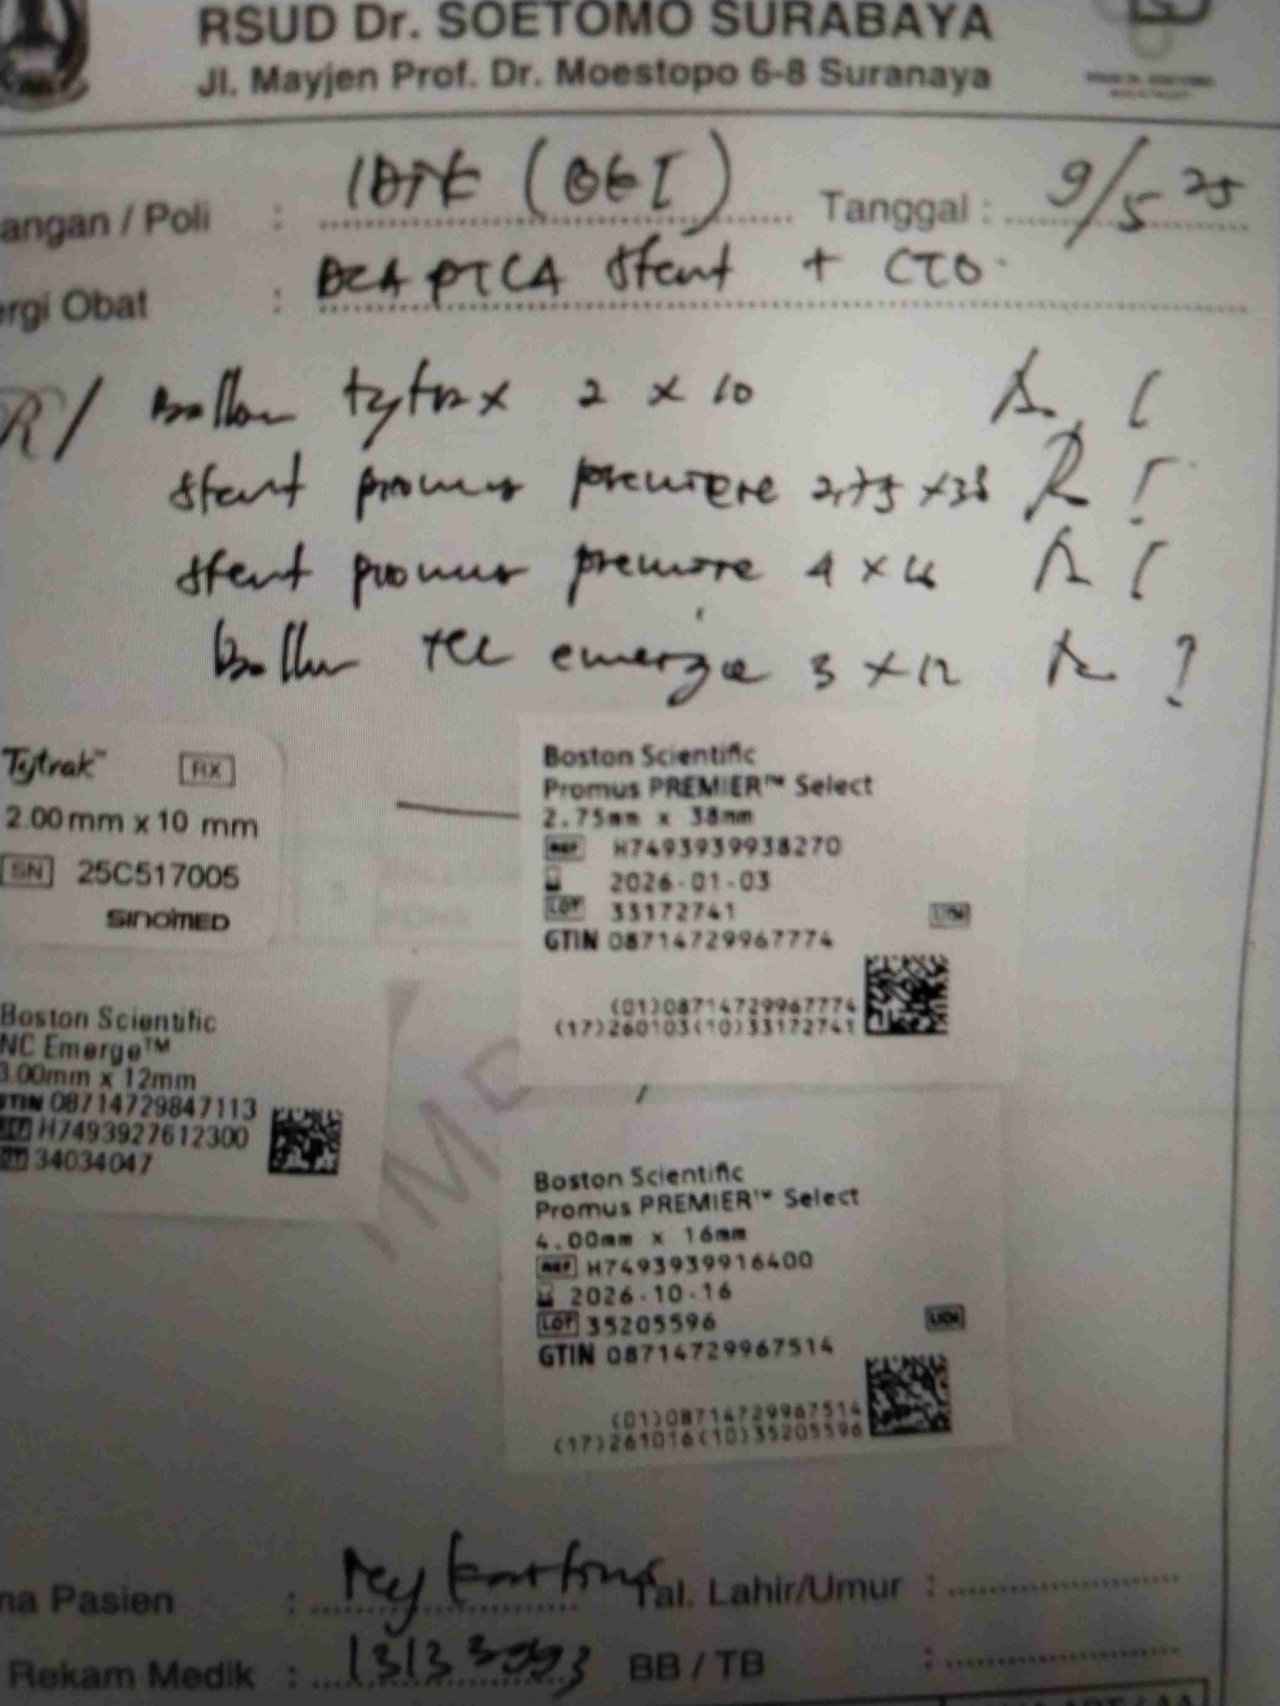 RSUD Dr. SOETOMO SURABAYA
Jl. Mayjen Prof. Dr. Moestopo 6-8 Suranaya
angan / Poli : Tanggal : 9/5 25
ergi Obat : PTCA stent + CTO
R/ Ballon 2 x 10
stent promus premiere 2,75 x 38
stent promus premiere 4 x 16
emerge 3 x 12
Tytrak™ RX
2.00 mm x 10 mm
SN 25C517005
SINOMED
Boston Scientific
Promus PREMIER™ Select
2.75mm x 38mm
REF H7493939938270
2026-01-03
LOT 33172741
GTIN 08714729967774
(01)08714729967774
(17)260103(10)33172741
Boston Scientific
NC Emerge™
3.00mm x 12mm
GTIN 08714729847113
H7493927612300
34034047
Boston Scientific
Promus PREMIER™ Select
4.00mm x 16mm
REF H7493939916400
2026-10-16
LOT 35205596
GTIN 08714729967514
(01)08714729967514
(17)261016(10)35205596
na Pasien : Tal. Lahir/Umur :
Rekam Medik : BB / TB :